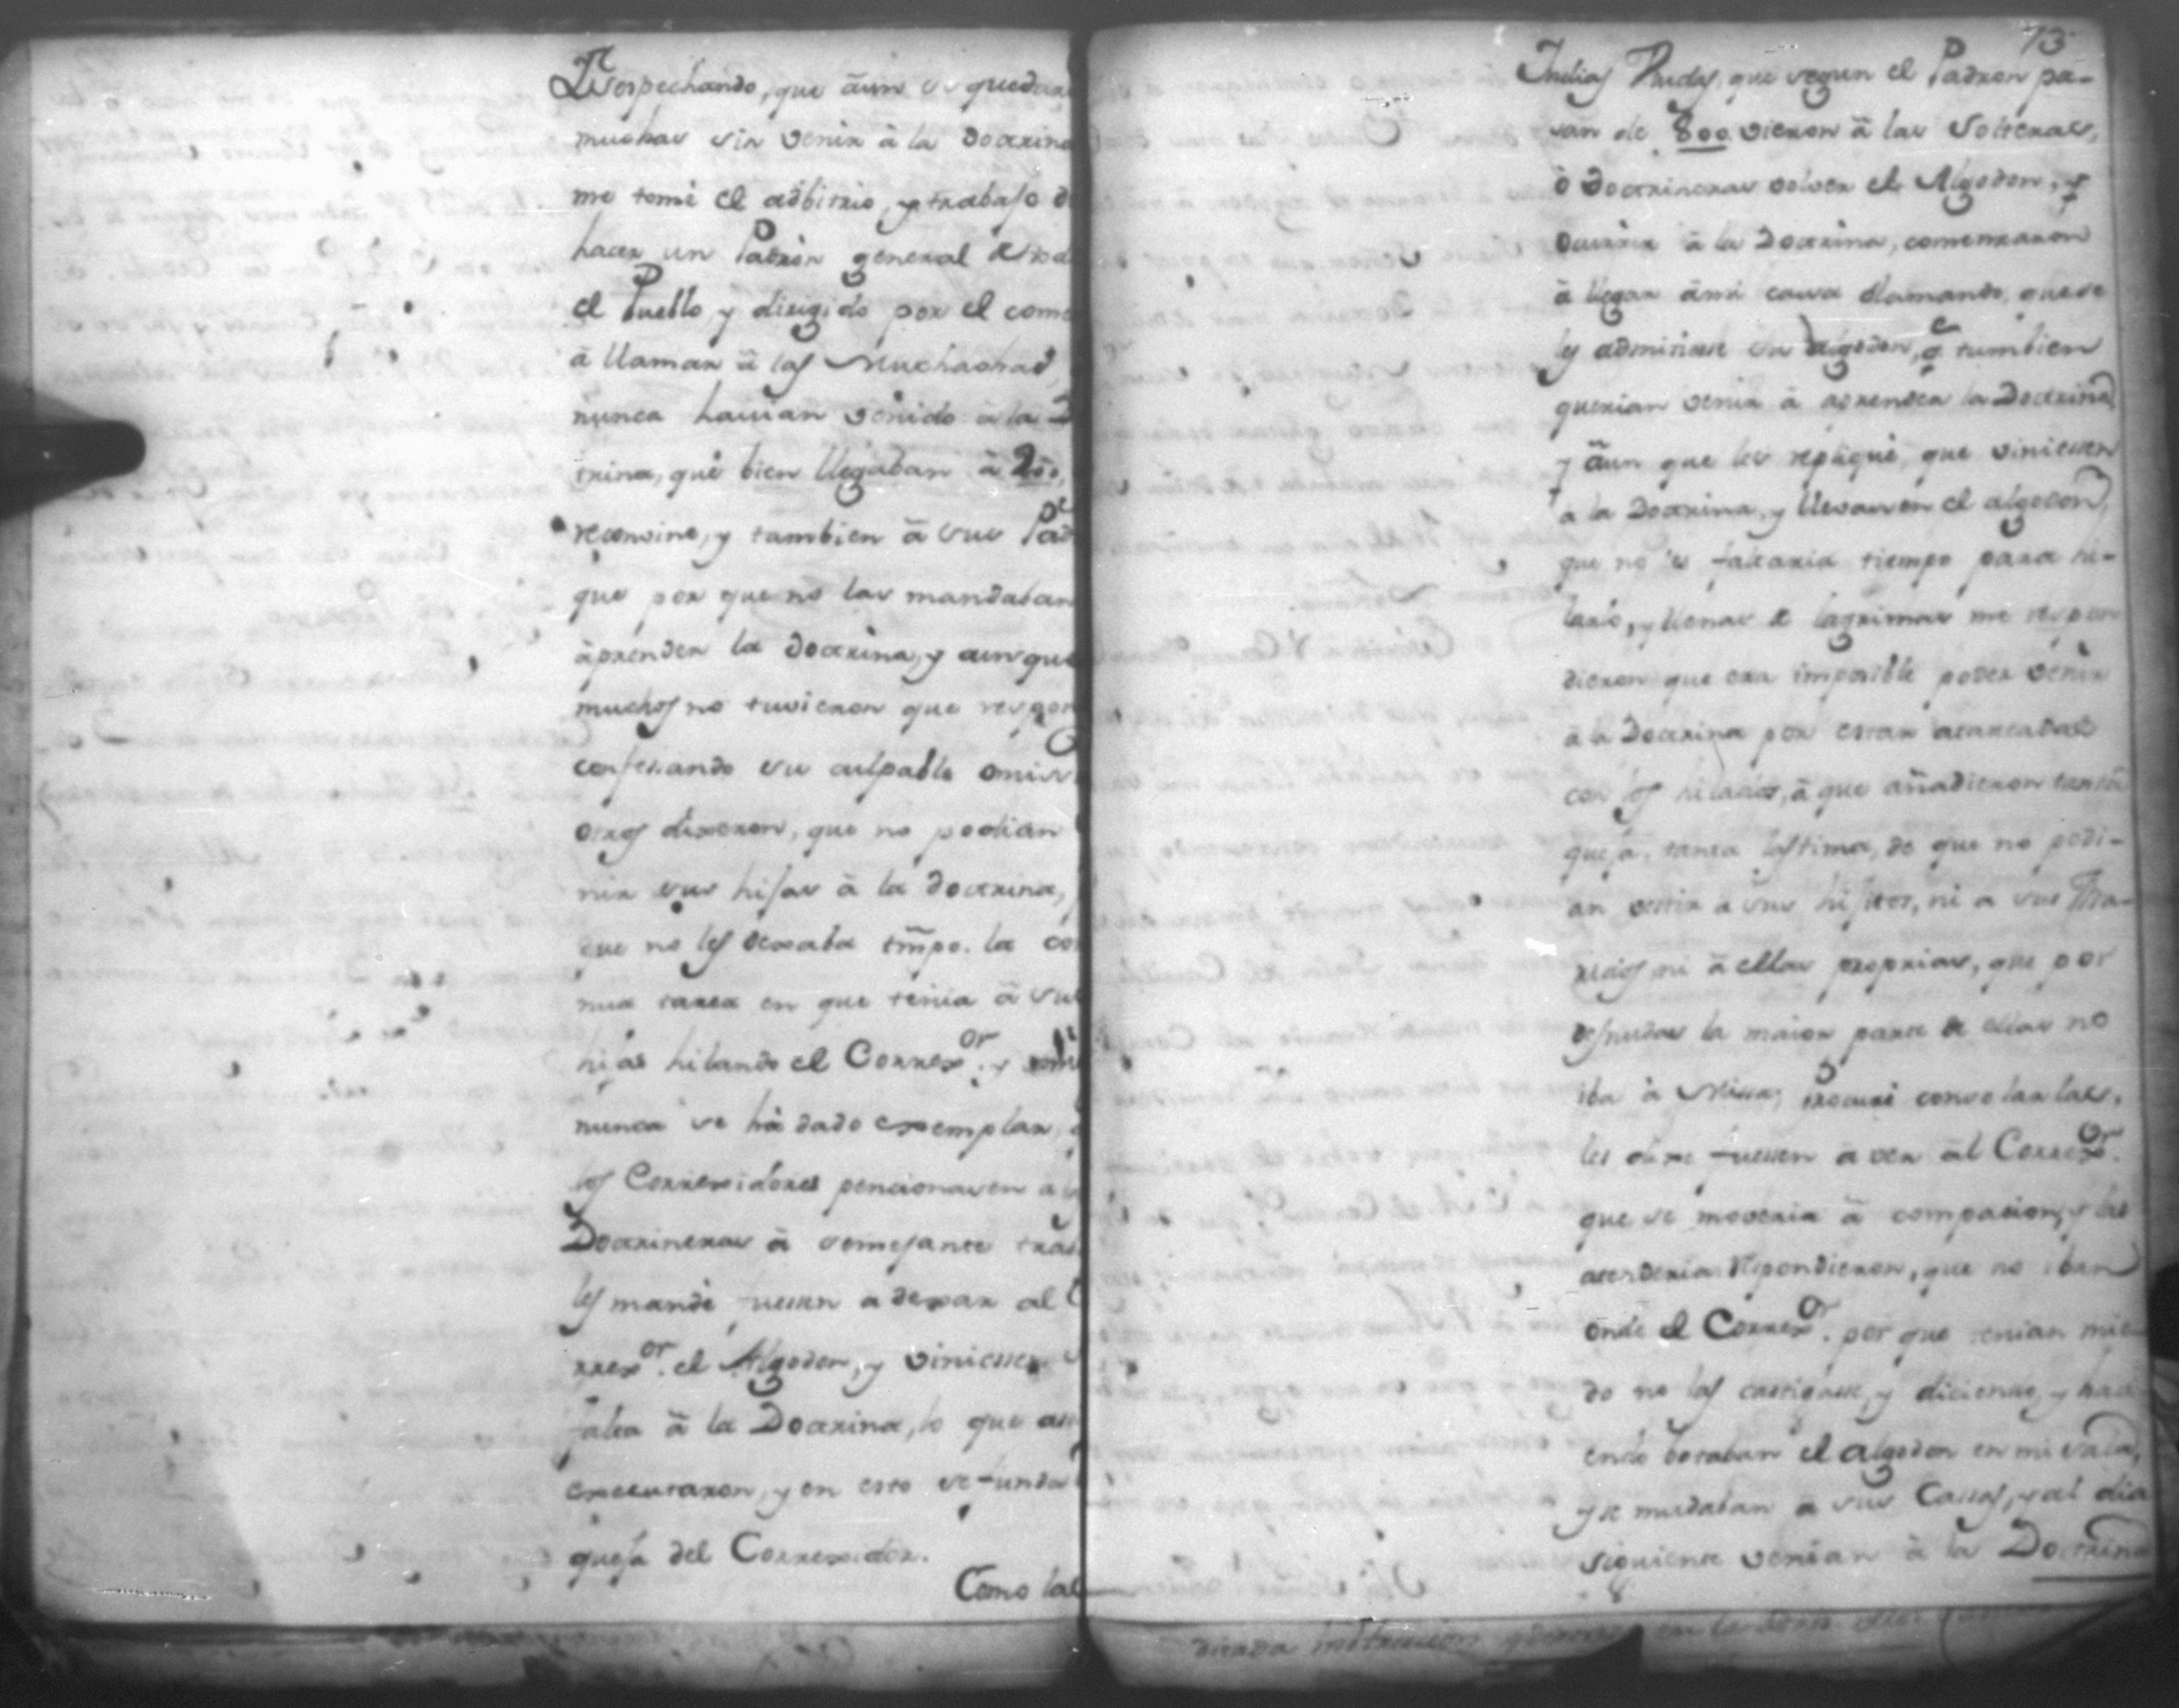 Y sospechando, que aun se quedar
muchas sin venir à la Doctrina
me tomé el adbitrio, y trabajo d
hacer un Padron general de to
el Pueblo, y dirigido por el com
à llamar à las Muchachas,
nunca havian venido à la D
trina, que bien llegaban à 200,
reconvine, y tambien à sus Pad
que por que no las mandaban
àprender la doctrina, y aunque
muchos no tuvieron que respon
confesando su culpable omiss
otros dixeron, que no podian
nir sus hijas à la doctrina,
que no les dexaba tmpo. la co
nua tarea en que tenia à sus
hijas hilando el Correxor. y
nunca se hà dado exemplar,
los Correxidores pencionasen a l
Doctrineras à semejante trab
les mandè fuesen a dexar al C
rrexor. el Algodon, y viniesen
falta à la Doctrina, lo que asi
executaron, y en esto se funda
queja del Correxidor.
Como las
73
Indias Viudas, que segun el Padron pa-
san de 800 vieron à las Solteras,
ò Doctrineras volver el Algodon, y
ocurrir à la Doctrina, comenzaron
à llegar àmi casa clamando, que se
les admitiese su algodon, q. tambien
querian venir à aprender la Doctrina
y àun que les repliquè, que viniesen
a la Doctrina, y llevasen el algodon,
que no les faltaria tiempo para hi-
larlo, y llenas de lagrimas me respon
dieron que era imposible poder venir
à la Doctrina por estar atareadas
con los hilados, à que añadieron tanta
queja, tanta lastima, de que no podi-
an vestir à sus hijitos, ni a sus Ma-
ridos, ni à ellas proprias, que por
desnudas la maior parte de ellas no
iba à Missa; procurè consolarlas,
les dixe fuesen à ver àl Correxor.
que se moveria à compacion, y las
atenderia. Respondieron, que no iban
onde el Correxor. por que tenian mie-
do no las castigase, y diciendo, y haci
endo botaban el algodon en mi sala,
y se mudaban a sus Casas, y al dia
siguiente venian à la Doctrina